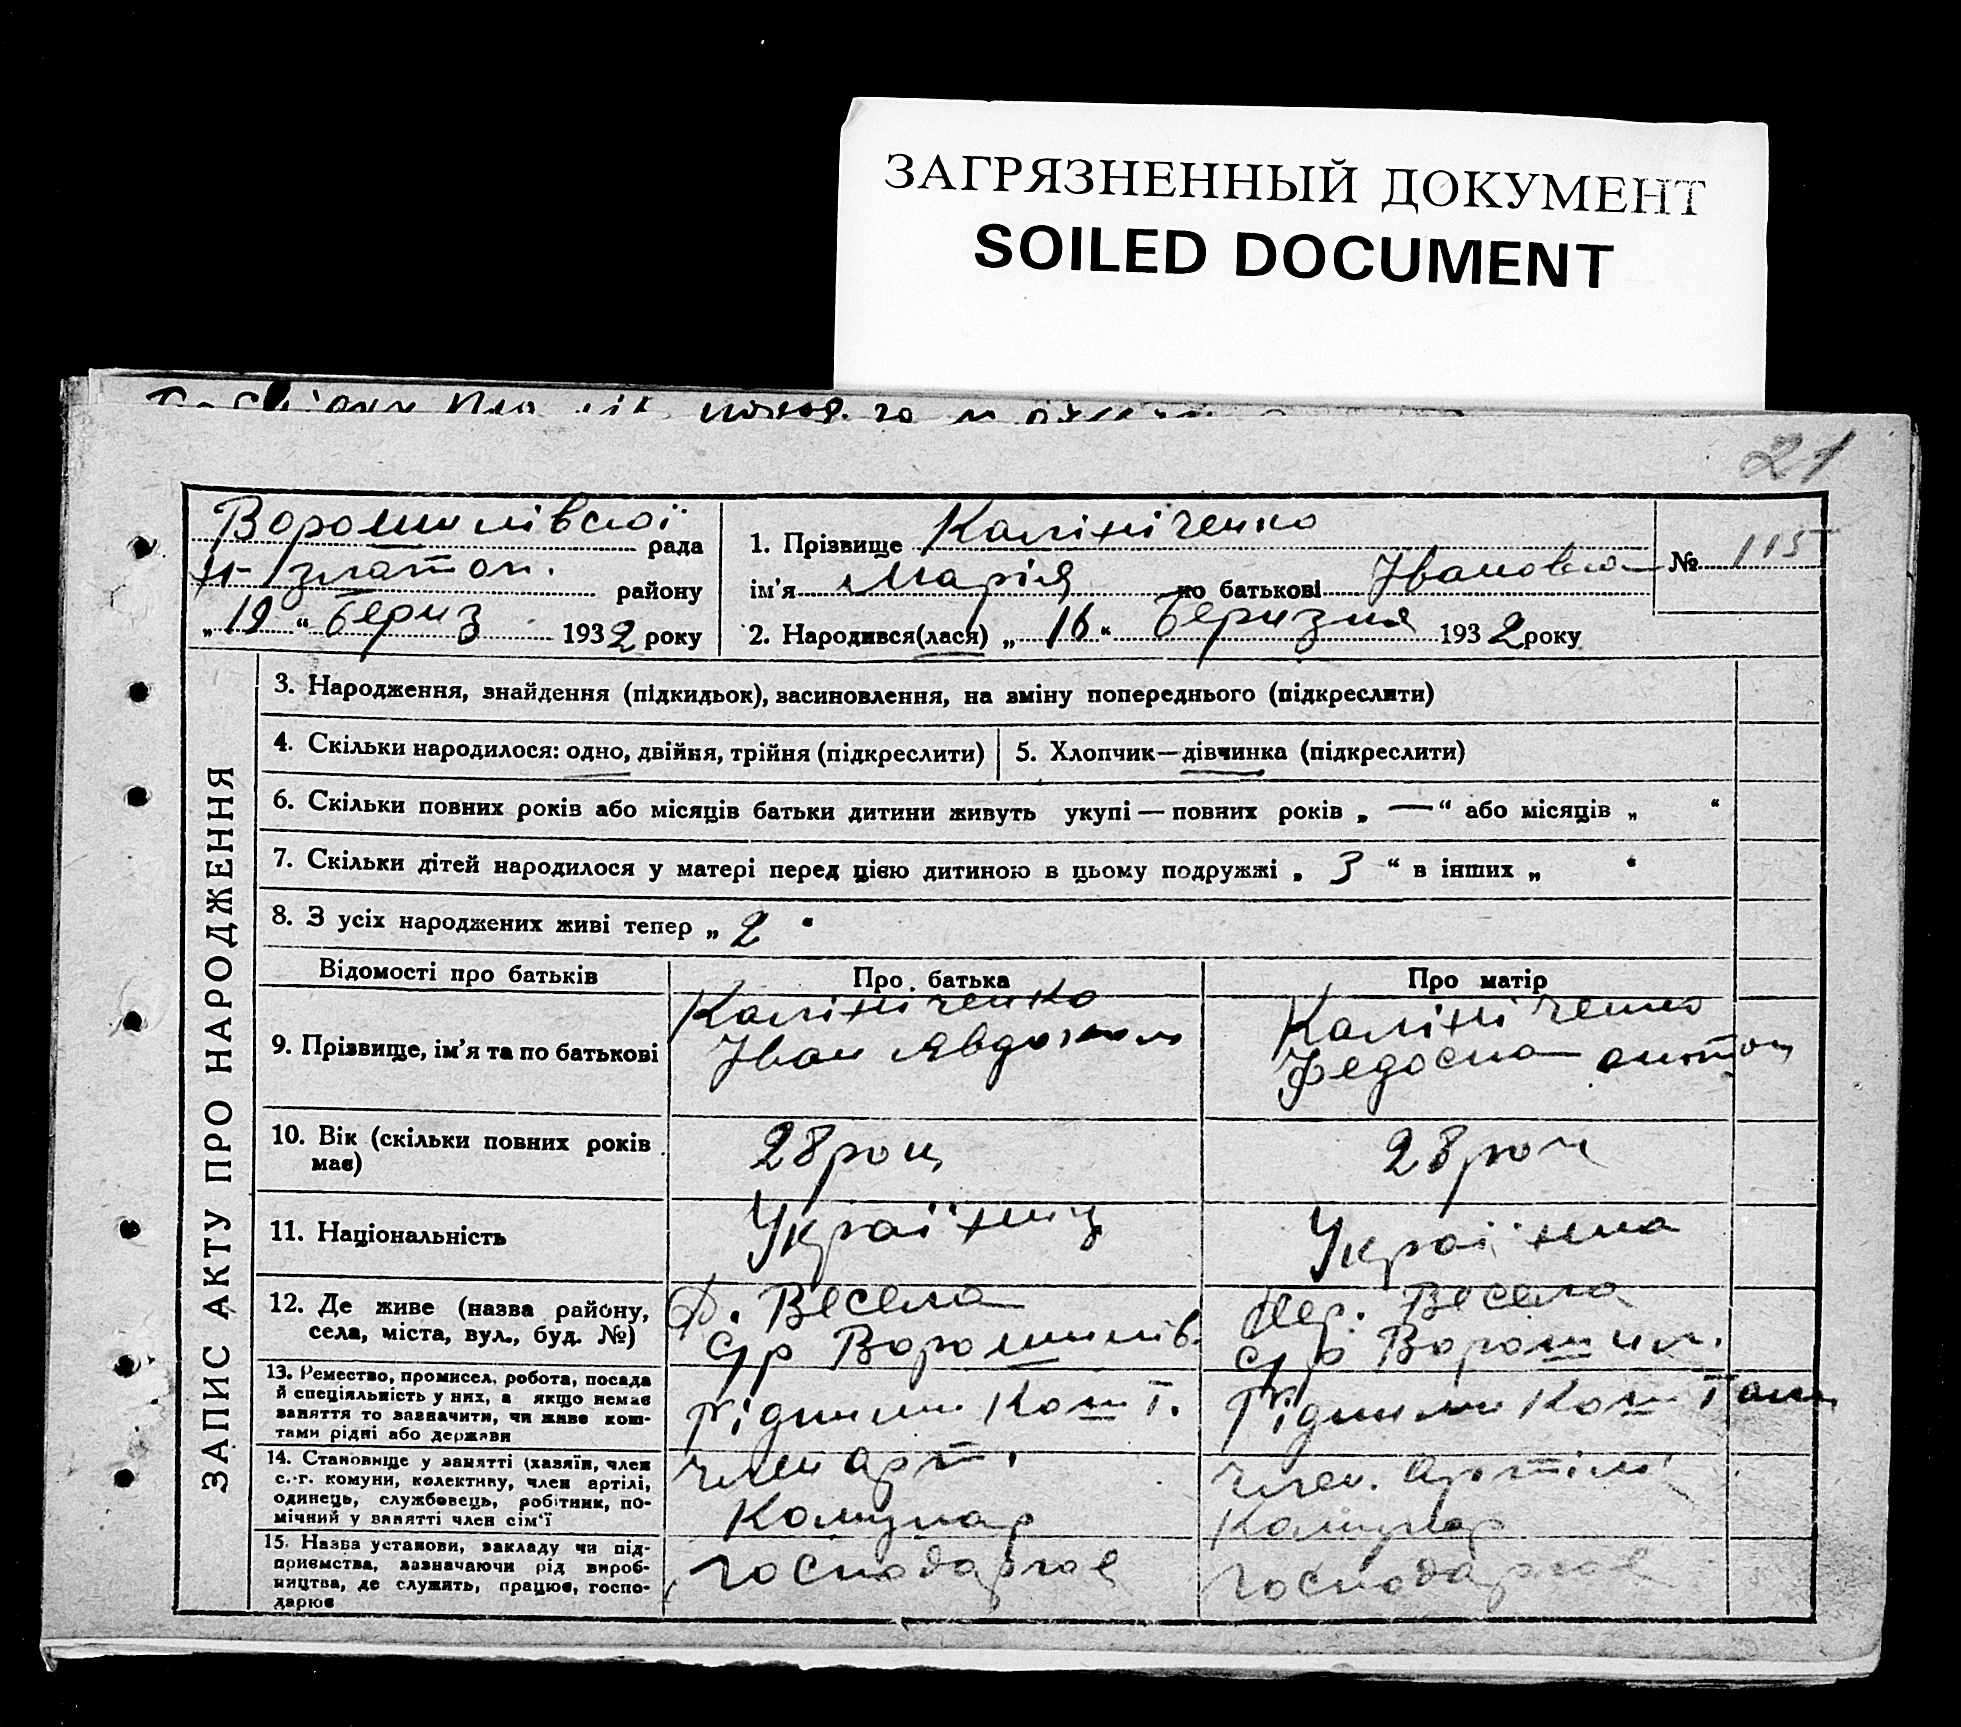 ЗАГРЯЗНЕННЫЙ ДОКУМЕНТ
SOILED DOCUMENT
21
Ворошилівської рада
Н-Златоп. району
„19“ Бериз 1932 року
1. Прізвище Калініченко
ім'я Марія по батькові Івановна
№ 115
2. Народився(лася) „16“ Беризня 1932 року
ЗАПИС АКТУ ПРО НАРОДЖЕННЯ
3. Народження, знайдення (підкидьок), засиновлення, на зміну попереднього (підкреслити)
4. Скільки народилося: одно, двійня, трійня (підкреслити)
5. Хлопчик—дівчинка (підкреслити)
6. Скільки повних років або місяців батьки дитини живуть укупі — повних років „ — “ або місяців „ “
7. Скільки дітей народилося у матері перед цією дитиною в цьому подружжі „ 3 “ в інших „ “
8. З усіх народжених живі тепер „ 2 “
Відомості про батьків
Про батька
Про матір
9. Прізвище, ім'я та по батькові
Калініченко
Іван
Калініченко
Федоска антон
10. Вік (скільки повних років
має)
28 роц
28 роч
11. Національність
Україніц
Україна
12. Де живе (назва району,
села, міста, вул., буд. №)
Д. Весела
с/р Ворошилів.
Дер. Весела
с/р Ворошил.
13. Ремество, промисел, робота, посада
й спеціяльність у них, а якщо немає
заняття то зазначити, чи живе кош-
тами рідні або держави
Рідними Кошт.
Рідними Коштами
14. Становище у занятті (хазяїн, член
с.-г. комуни, колективу, член артілі,
одинець, службовець, робітник, по-
мічний у занятті член сім'ї
член арт.
Комунар
член. Артілі
Комунар
15. Назва установи, закладу чи під-
приємства, зазначаючи рід вироб-
ництва, де служить, працює, госпо-
дарює
господарює
господарює